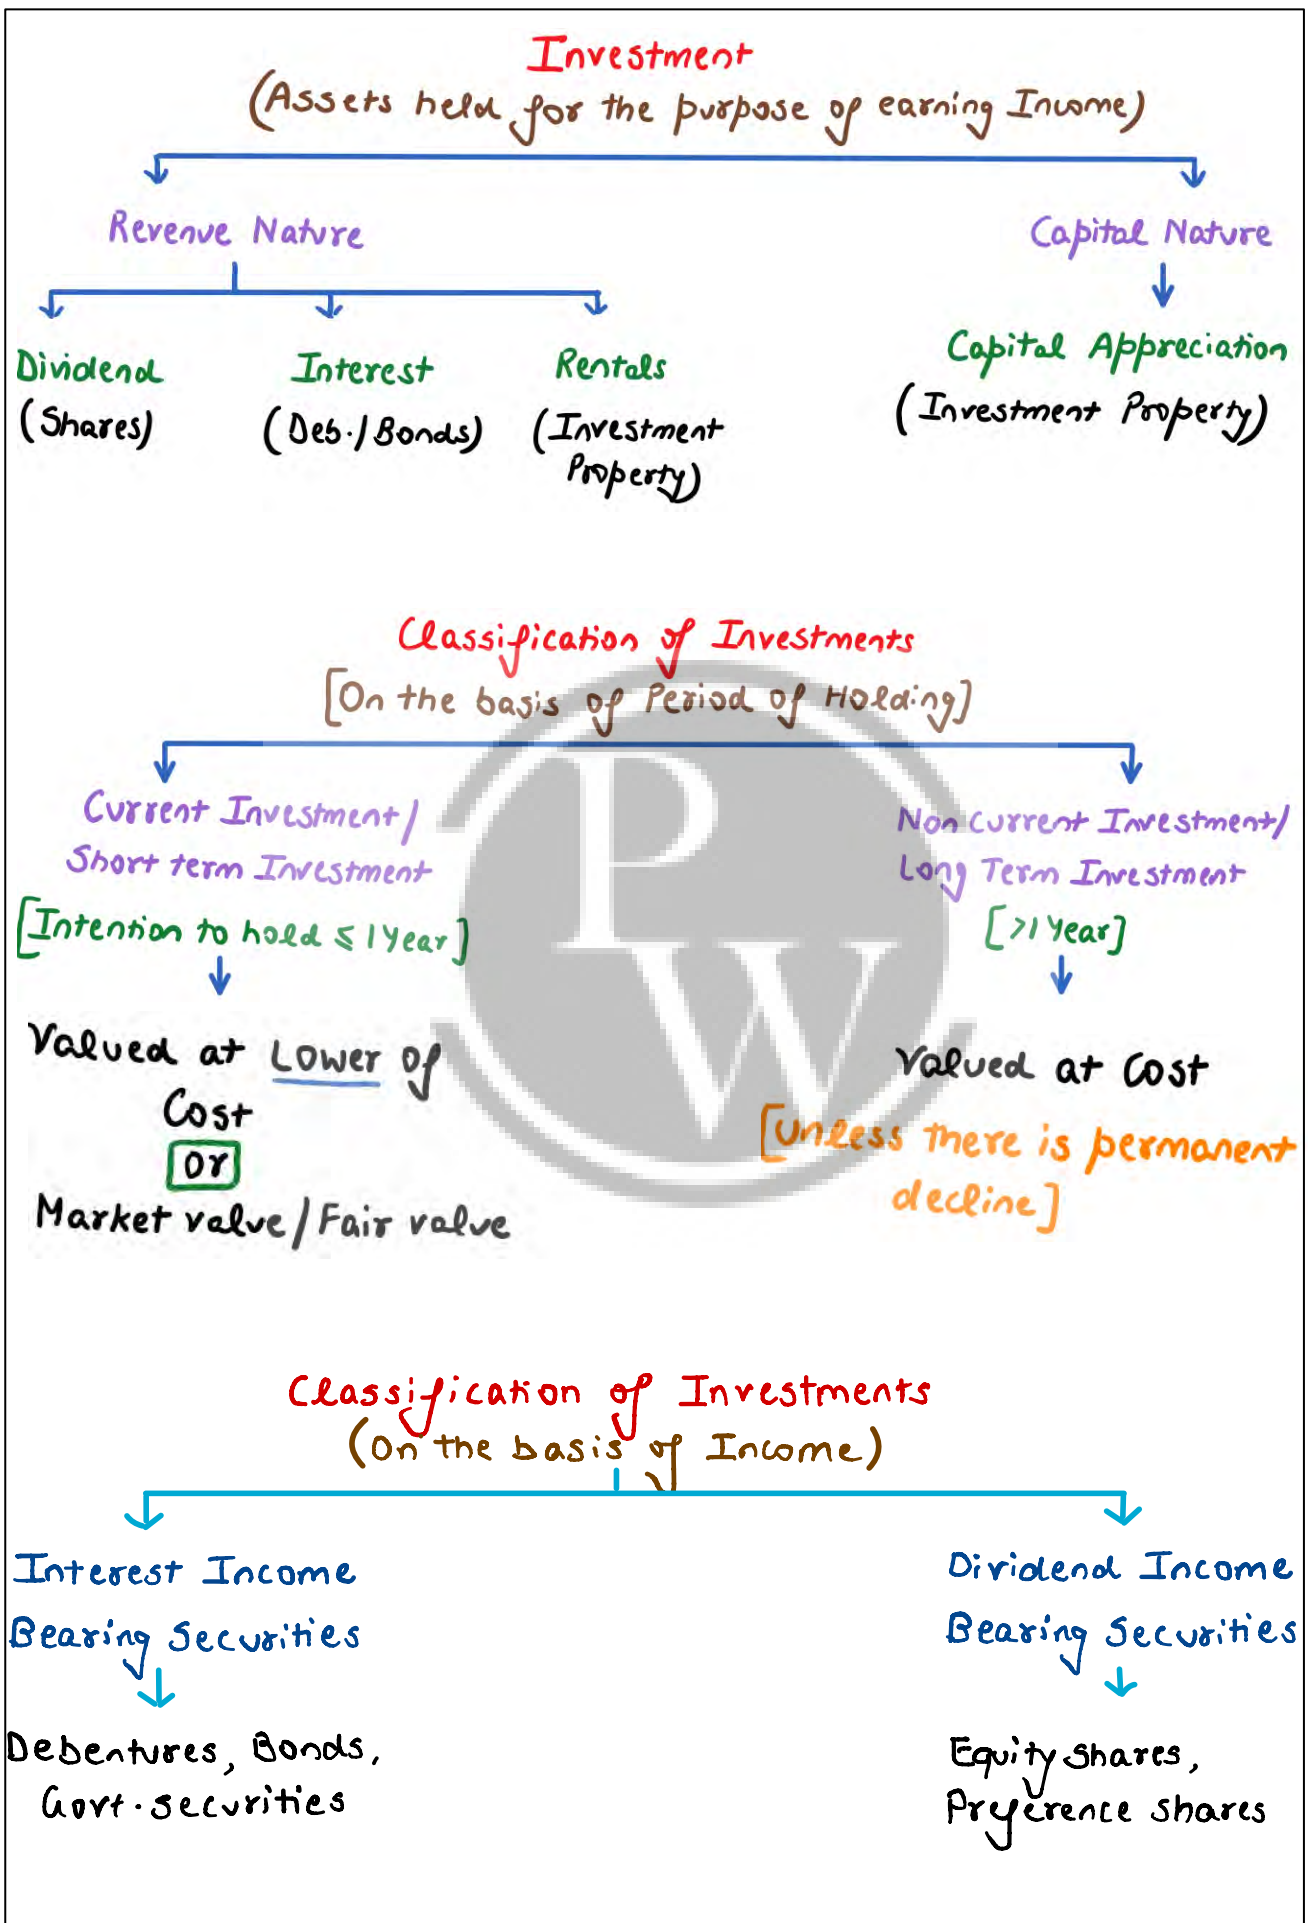 Investment
(Assets held for the purpose of earning Income)
Revenue Nature
Capital Nature
Dividend
(Shares)
Interest
(Deb./Bonds)
Rentals
(Investment
Property)
Capital Appreciation
(Investment Property)
Classification of Investments
[On the basis of Period of Holding]
Current Investment/
Short term Investment
[Intention to hold ≤ 1 Year]
Valued at Lower of
Cost
Or
Market value/Fair value
Non Current Investment/
Long Term Investment
[>1 Year]
Valued at Cost
[Unless there is permanent
decline]
PW
Classification of Investments
(On the basis of Income)
Interest Income
Bearing Securities
Debentures, Bonds,
Govt. securities
Dividend Income
Bearing Securities
Equity shares,
Preference shares